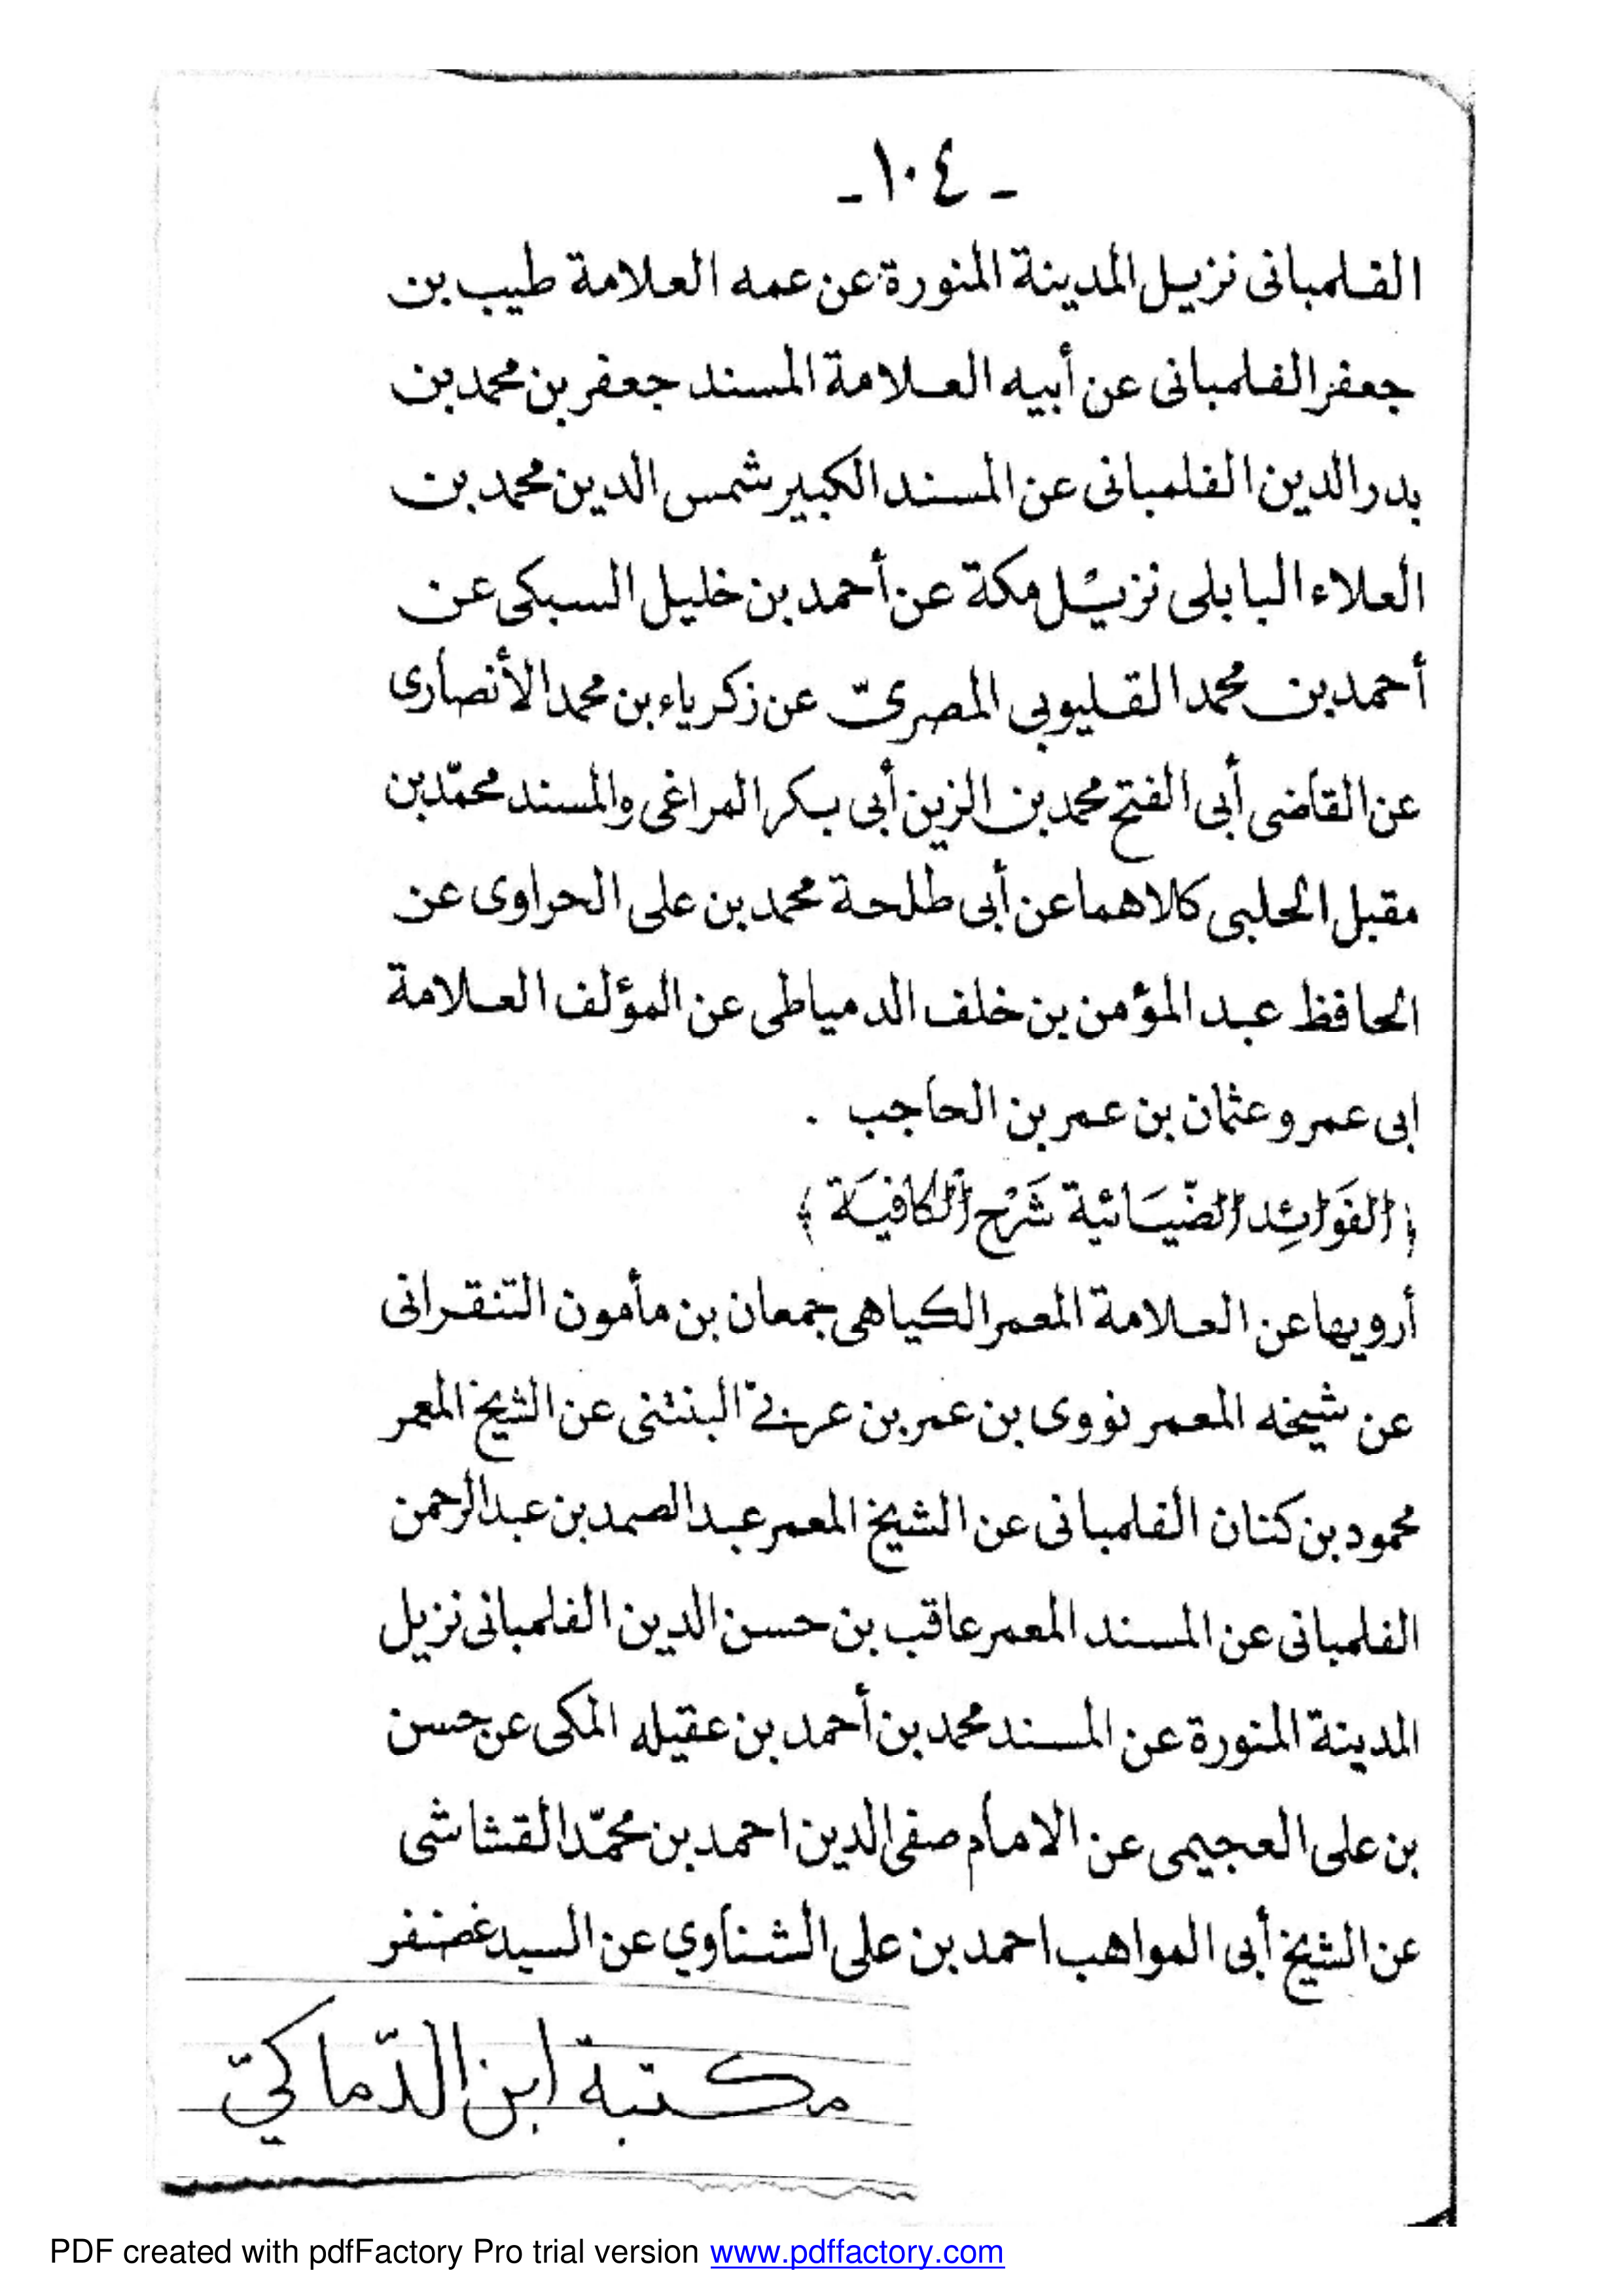 - ١٠٤ -
الفلمبانى نزيل المدينة المنورة عن عمه العلامة طيب بن
جعفر الفلمبانى عن أبيه العلامة المسند جعفر بن محمد بن
بدر الدين الفلمبانى عن المسند الكبير شمس الدين محمد بن
العلاء البابلى نزيل مكة عن أحمد بن خليل السبكى عن
أحمد بن محمد القليوبي المصريّ عن زكرياء بن محمد الأنصارى
عن القاضى أبى الفتح محمد بن الزين أبى بكر المراغى والمسند محمّد بن
مقبل الحلبى كلاهما عن أبى طلحة محمد بن على الحراوى عن
الحافظ عبد المؤمن بن خلف الدمياطى عن المؤلف العلامة
ابى عمرو عثمان بن عمر بن الحاجب .
﴿ الفَوَائِد الضّيَائية شَرْح الكافيَة ﴾
أرويها عن العلامة المعمر الكياهى جمعان بن مأمون التنقرانى
عن شيخه المعمر نووى بن عمر بن عربي البنتنى عن الشيخ المعمر
محمود بن كنان الفلمبانى عن الشيخ المعمر عبد الصمد بن عبد الرحمن
الفلمبانى عن المسند المعمر عاقب بن حسن الدين الفلمبانى نزيل
المدينة المنورة عن المسند محمد بن أحمد بن عقيله المكى عن حسن
بن على العجيمى عن الامام صفى الدين احمد بن محمّد القشاشى
عن الشيخ أبى المواهب احمد بن على الشناوي عن السيد غضنفر
مكتبة ابن الدّماكيّ
PDF created with pdfFactory Pro trial version www.pdffactory.com